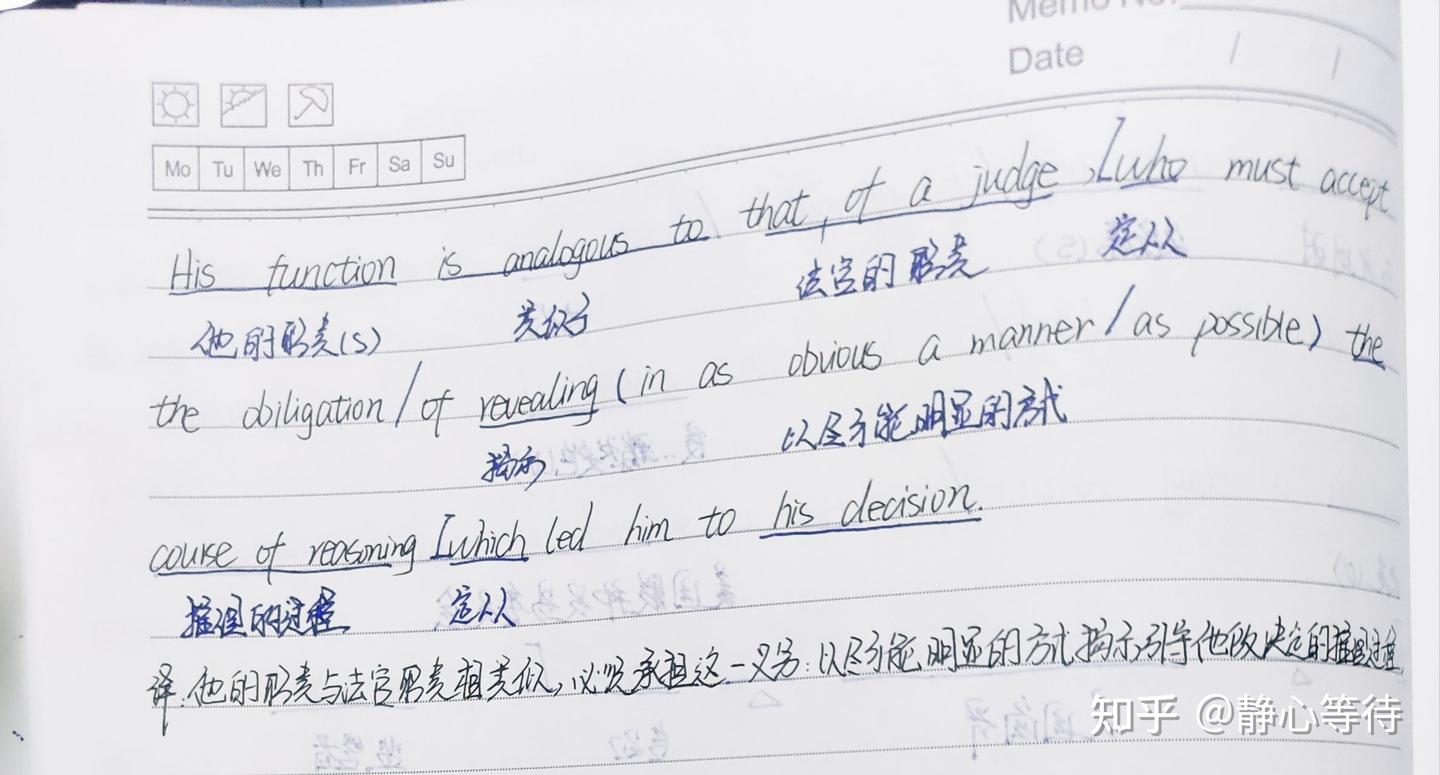 Memo No.
Date / /
Mo Tu We Th Fr Sa Su
His function is analogous to that, of a judge, [who must accept
他的职责(S) 类似于 法官的职责 定从
the obiligation/of revealing (in as obvious a manner/as possible) the
揭示 以尽可能明显的方式
course of reasoning [which led him to his decision.
推理的过程 定从
译:他的职责与法官职责相类似,必须承担这一义务:以尽可能明显的方式揭示引导他做决定的推理过程.
知乎 @静心等待